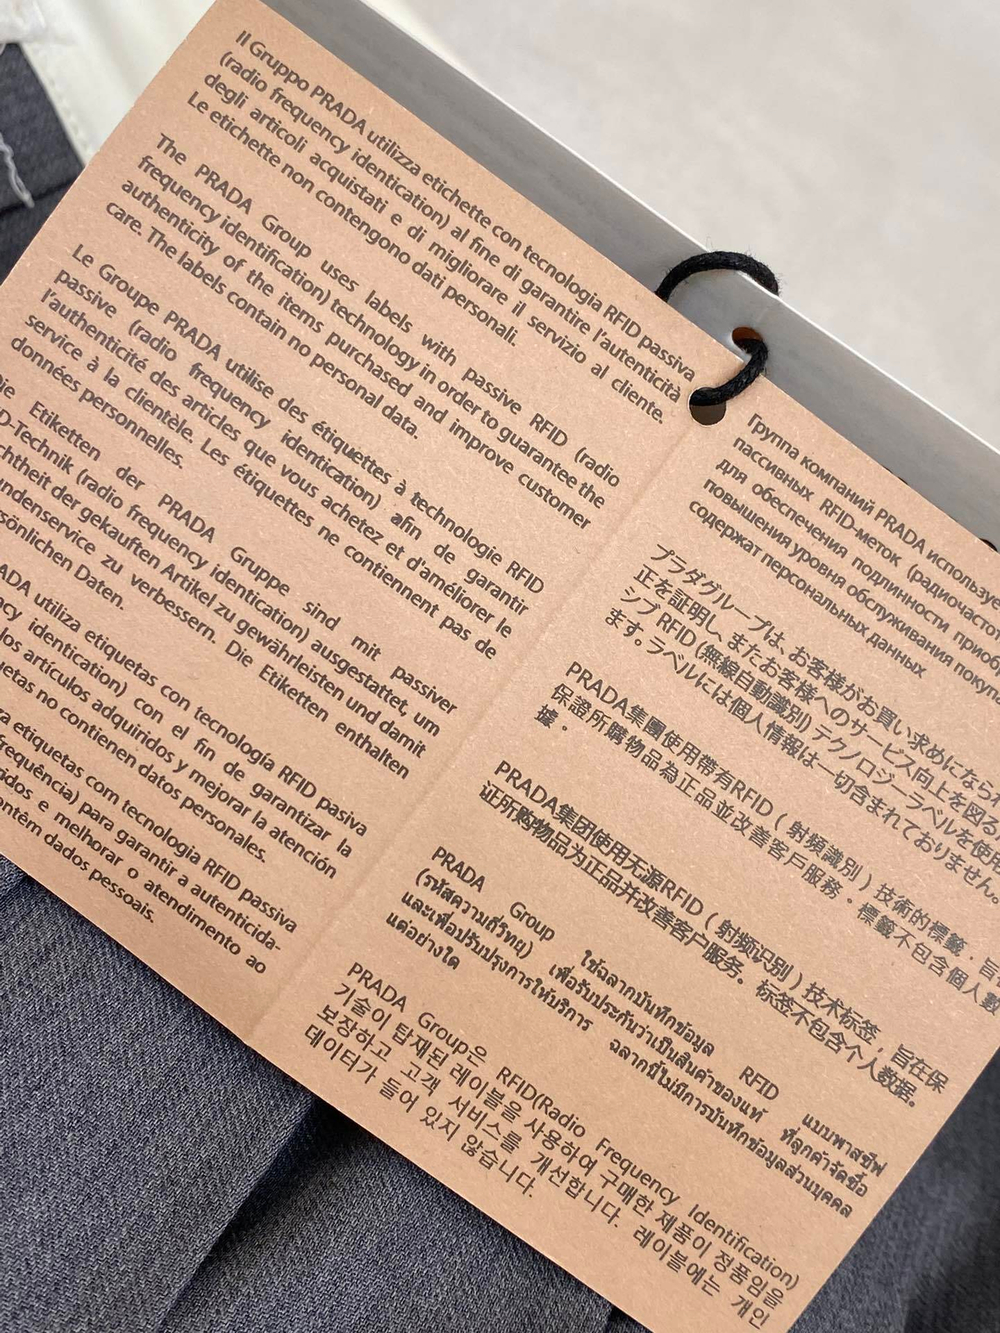 Il Gruppo PRADA utilizza etichette con tecnologia RFID passiva
(radio frequency identication) al fine di garantire l'autenticità
degli articoli acquistati e di migliorare il servizio al cliente.
Le etichette non contengono dati personali.
The PRADA Group uses labels with passive RFID (radio
frequency identification) technology in order to guarantee the
authenticity of the items purchased and improve customer
care. The labels contain no personal data.
Le Groupe PRADA utilise des étiquettes à technologie RFID
passive (radio frequency identication) afin de garantir
l'authenticité des articles que vous achetez et d'améliorer le
service à la clientèle. Les étiquettes ne contiennent pas de
données personnelles.
Etiketten der PRADA Gruppe sind mit passiver
D-Technik (radio frequency identication) ausgestattet, um
chtheit der gekauften Artikel zu gewährleisten und damit
undenservice zu verbessern. Die Etiketten enthalten
sönlichen Daten.
ADA utiliza etiquetas con tecnología RFID pasiva
cy identication) con el fin de garantizar la
los artículos adquiridos y mejorar la atención
uetas no contienen datos personales.
a etiquetas com tecnologia RFID passiva
frequência) para garantir a autenticida-
ridos e melhorar o atendimento ao
ontêm dados pessoais.
Группа компаний PRADA используе
пассивных RFID-меток (радиочасто
для обеспечения подлинности приоб
повышения уровня обслуживания покуп
содержат персональных данных
プラダグループは、お客様がお買い求めになられ
正を証明し、またお客様へのサービス向上を図る
シブ RFID (無線自動識別) テクノロジーラベルを使用
ます。ラベルには個人情報は一切含まれておりません。
PRADA集團使用帶有RFID ( 射頻識別 ) 技術的標籤，旨
保證所購物品為正品並改善客戶服務。標籤不包含個人數
據。
PRADA集团使用无源RFID ( 射频识别 ) 技术标签，旨在保
证所购物品为正品并改善客户服务。标签不包含个人数据。
PRADA Group ใช้ฉลากบันทึกข้อมูล RFID แบบพาสซีฟ
(รหัสความถี่วิทยุ) เพื่อรับประกันว่าเป็นสินค้าของแท้ ที่ลูกค้าจัดซื้อ
และเพื่อปรับปรุงการให้บริการ ฉลากนี้ไม่มีการบันทึกข้อมูลส่วนบุคคล
แต่อย่างใด
PRADA Group은 RFID(Radio Frequency Identification)
기술이 탑재된 레이블을 사용하여 구매한 제품이 정품임을
보장하고 고객 서비스를 개선합니다. 레이블에는 개인
데이터가 들어 있지 않습니다.